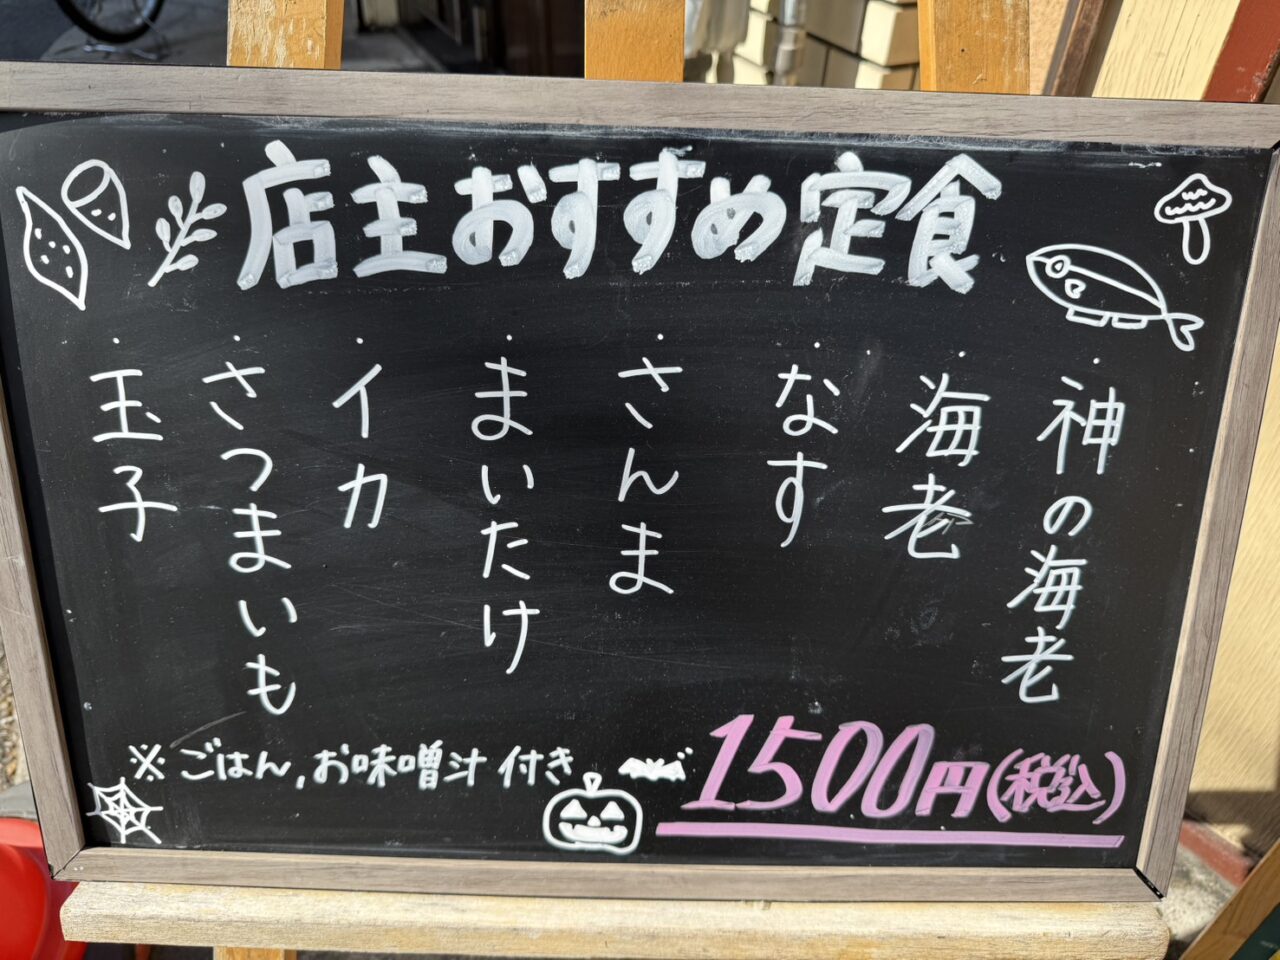 店主おすすめ定食
・神の海老
・海老
・なす
・さんま
・まいたけ
・イカ
・さつまいも
・玉子
※ごはん,お味噌汁付き
1500円(税込)